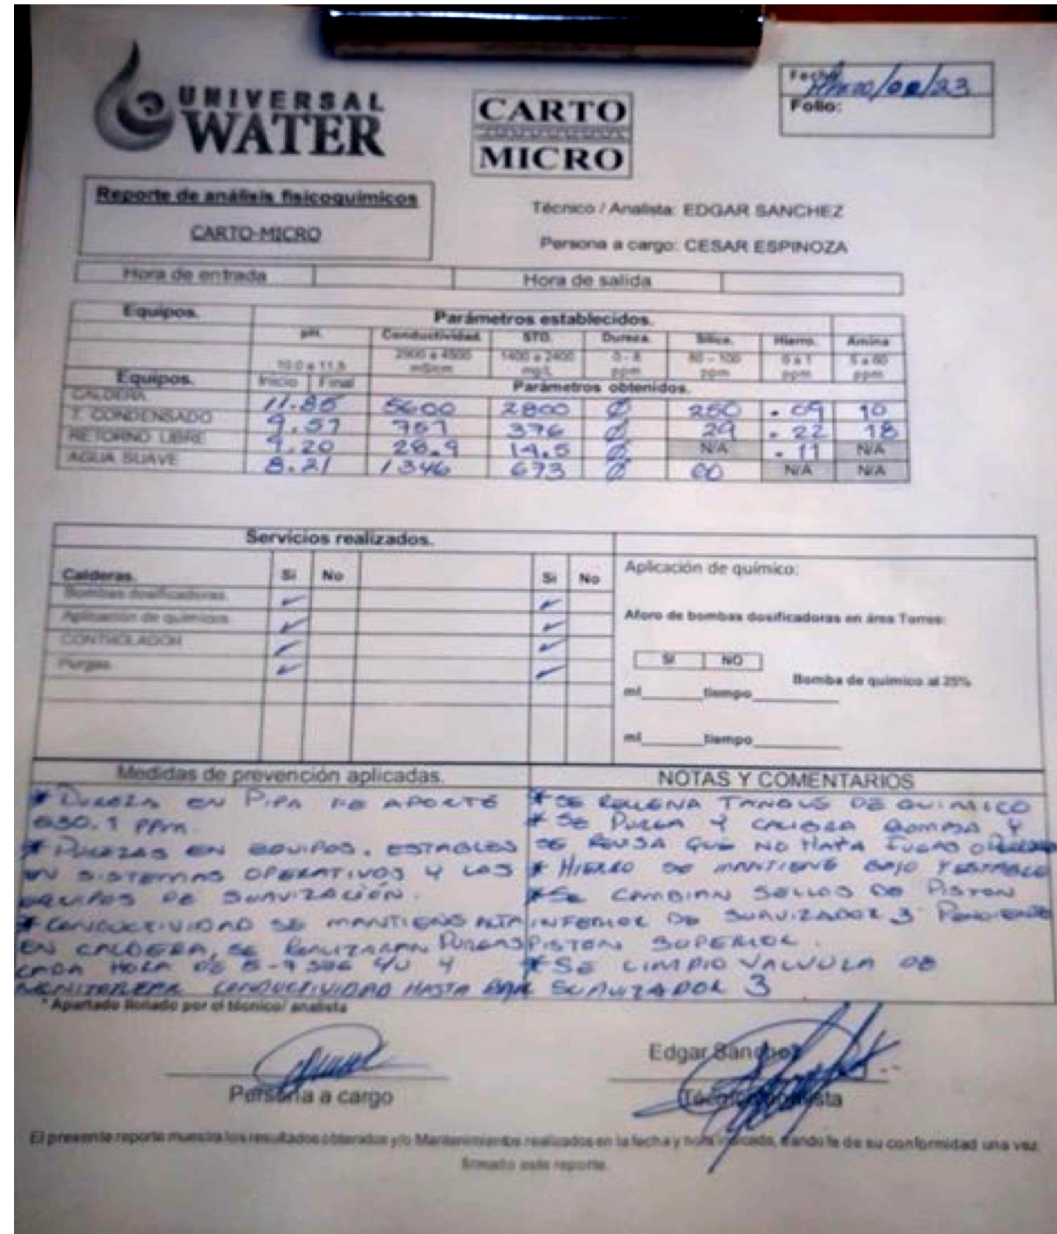 UNIVERSAL WATER
CARTO MICRO
Fecha: /08/23
Folio:
Reporte de análisis fisicoquímicos
CARTO-MICRO
Técnico / Analista: EDGAR SANCHEZ
Persona a cargo: CESAR ESPINOZA
Hora de entrada Hora de salida
Equipos. Parámetros establecidos.
pH. Conductividad. STD. Dureza. Sílice. Hierro. Amina
10.0 a 11.5 2900 a 4500 mS/cm 1400 a 2400 mg/L 0 - 8 ppm 80 - 100 ppm 0 a 1 ppm 5 a 60 ppm
Equipos. Inicio Final Parámetros obtenidos.
CALDERA 11.85 5600 2800 Ø 250 .09 10
T. CONDENSADO 9.57 757 376 Ø 29 .22 18
RETORNO LIBRE 9.20 28.9 14.5 Ø N/A .11 N/A
AGUA SUAVE 8.21 1346 673 Ø 60 N/A N/A
Servicios realizados.
Calderas. Si No Si No
Bombas dosificadoras. ✓ ✓
Aplicación de químicos ✓ ✓
CONTROLADOR ✓ ✓
Purgas ✓ ✓
Aplicación de químico:
Aforo de bombas dosificadoras en área Torres:
SI NO
Bomba de químico al 25%
ml______tiempo________
ml______tiempo________
Medidas de prevención aplicadas.
* DUREZA EN PIPA DE APORTE
630.1 PPm.
* DUREZAS EN EQUIPOS, ESTABLES
EN SISTEMAS OPERATIVOS Y LOS
EQUIPOS DE SUAVIZACIÓN.
* CONDUCTIVIDAD SE MANTIENE ALTA
EN CALDERA, SE REALIZARAN PURGAS
CADA HORA DE 5-7 SEG Y
CONDUCTIVIDAD HASTA
NOTAS Y COMENTARIOS
* SE RELLENA TANQUE DE QUIMICO
* SE PURGA Y CALIBRA BOMBA Y
SE REVISA QUE NO HAYA FUGAS O
* HIERRO SE MANTIENE BAJO Y ESTABLE
* SE CAMBIAN SELLOS DE PISTON
INFERIOR DE SUAVIZADOR 3 PENDIENTE
PISTON SUPERIOR.
* SE LIMPIO VALVULA DE
SUAVIZADOR 3
* Apartado llenado por el técnico/ analista
Edgar Sanchez
Persona a cargo
Técnico/Analista
El presente reporte muestra los resultados obtenidos y/o Mantenimientos realizados en la fecha y hora indicada, dando fe de su conformidad una vez
firmado este reporte.